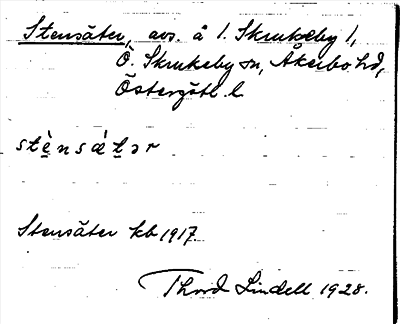 Stensäter, avs. å 1. Skrukeby 1,
Ö. Skrukeby sn, Åkerbo hd,
Östergötl. l.
stènsǽtər
Stensäter kb 1917
Thord Lindell 1928.